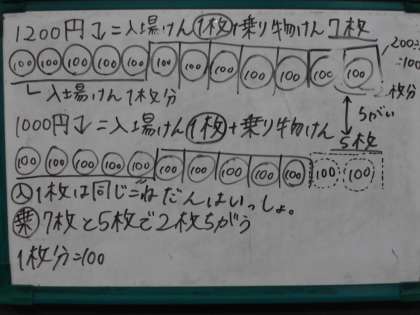 1200円↓=入場けん1枚+乗り物けん7枚
100 100 100 100 100 100 100 100 100 100 100 100
200÷2
=100
1枚分
入場けん1枚分
ちがい
1000円↓=入場けん1枚+乗り物けん5枚
100 100 100 100 100 100 100 100 100 100 100 100
入 1枚は同じ=ねだんはいっしょ。
乗 7枚と5枚で2枚ちがう
1枚分=100